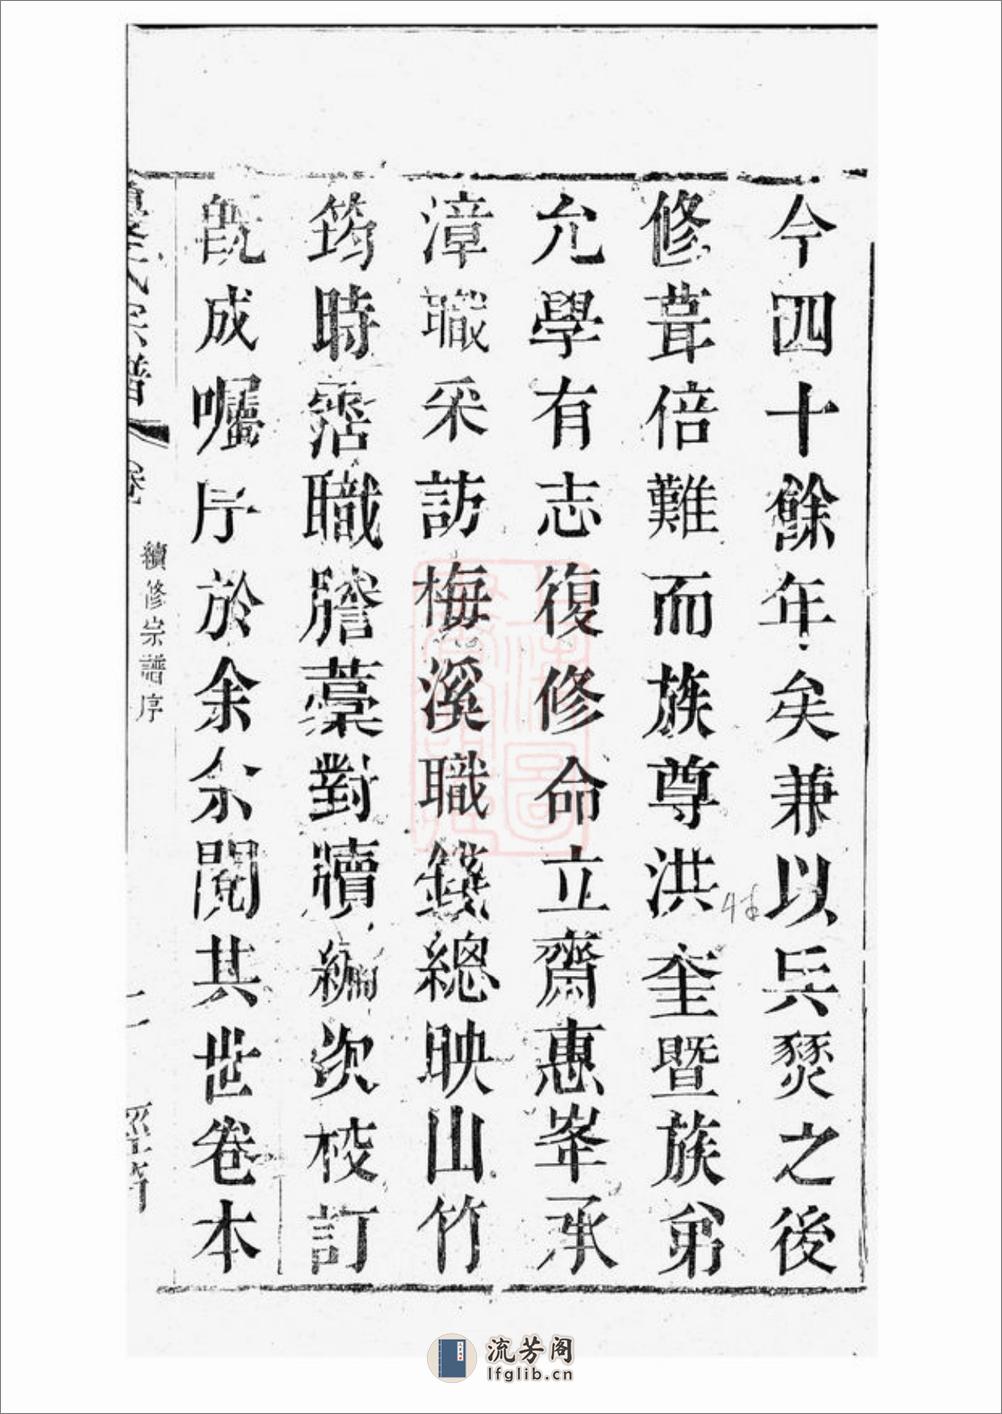 今四十餘年矣兼以兵燹之後
修葺倍難而族尊洪奎暨族弟
允學有志復修命立齋惠峯承
漳職采訪梅溪職錢總映山竹
筠時霑職謄藁對牘編次校訂
旣成囑序於余余閱其世卷本
氏宗譜
卷
續修宗譜序
流芳阁
lfglib.cn